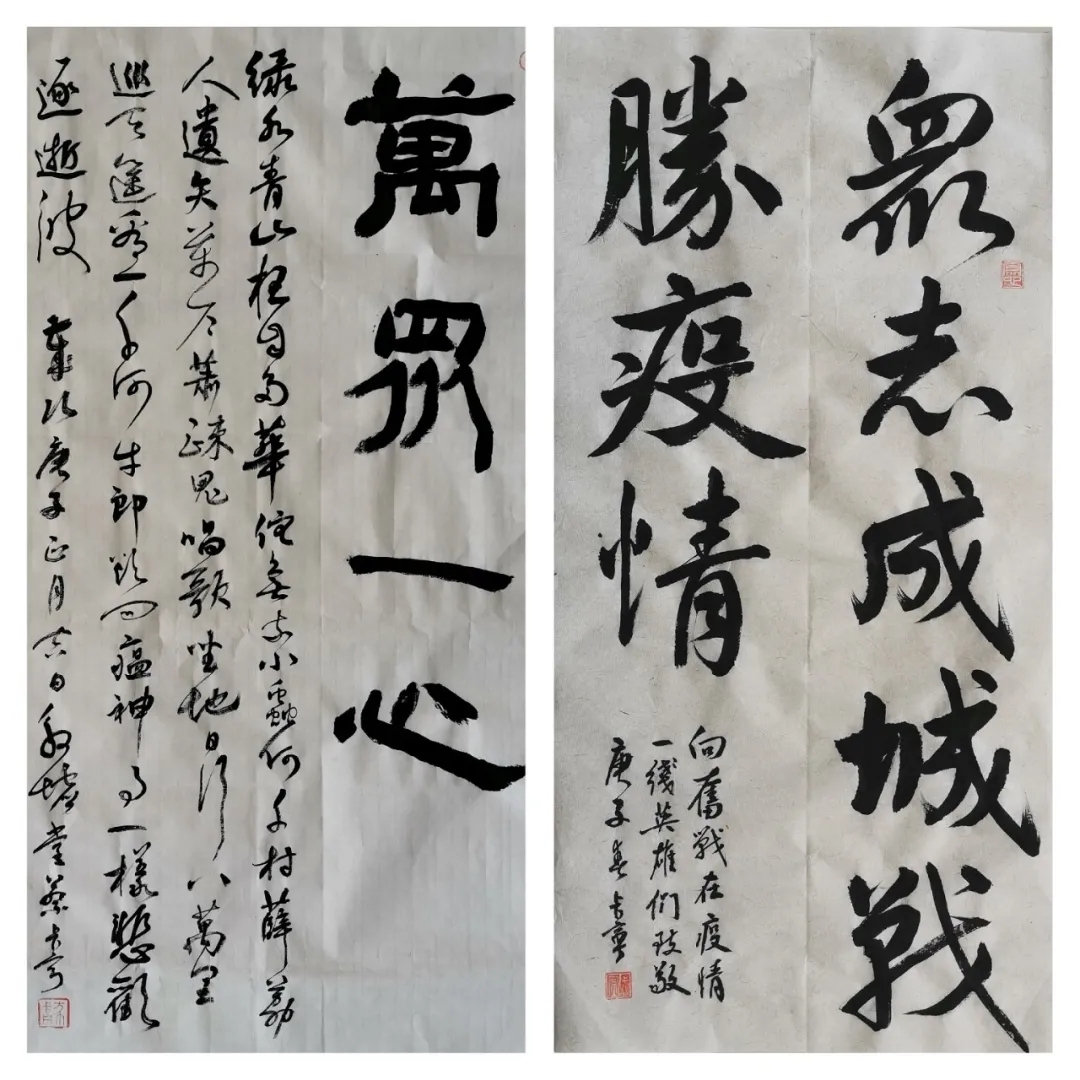 萬眾一心
綠水青山枉自多華佗無奈小蟲何千村薜荔
人遺矢萬戶蕭疏鬼唱歌坐地日行八萬里
巡天遙看一千河牛郎欲問瘟神事一樣悲歡
逐逝波 歲次庚子正月吉日
眾志成城戰
勝疫情
向奮戰在疫情
一綫英雄們致敬
庚子春